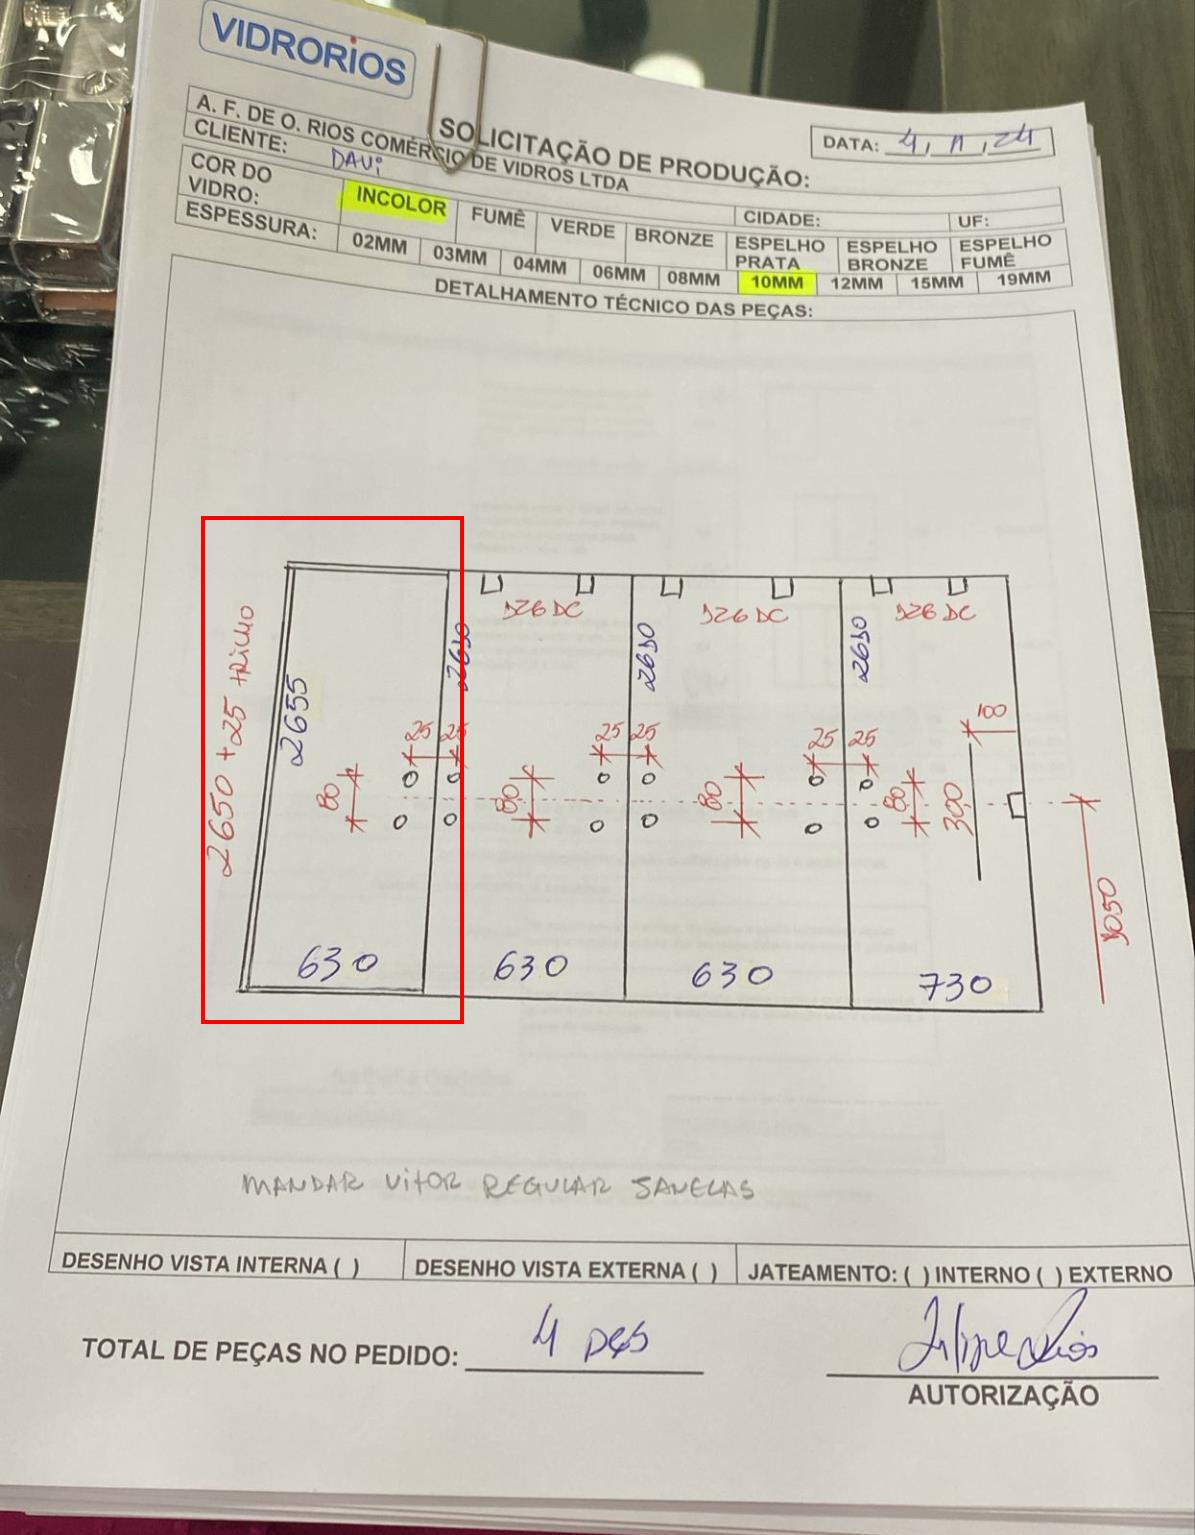 VIDRORIOS
SOLICITAÇÃO DE PRODUÇÃO:
DATA: 4, 11, 24
A. F. DE O. RIOS COMÉRCIO DE VIDROS LTDA
CLIENTE: DAVi
CIDADE: UF:
COR DO VIDRO: INCOLOR FUMÊ VERDE BRONZE ESPELHO PRATA ESPELHO BRONZE ESPELHO FUMÊ
ESPESSURA: 02MM 03MM 04MM 06MM 08MM 10MM 12MM 15MM 19MM
DETALHAMENTO TÉCNICO DAS PEÇAS:
126 DC 126 DC 126 DC
2650 +25 tRiLHO
2655 2630 2630 2630
25 25 25 25 25 25 100
80 80 80 80 300
1050
630 630 630 730
MANDAR VitOR REGULAR JANELAS
DESENHO VISTA INTERNA ( ) DESENHO VISTA EXTERNA ( ) JATEAMENTO: ( ) INTERNO ( ) EXTERNO
TOTAL DE PEÇAS NO PEDIDO: 4 PÇS
Filipe Rios
AUTORIZAÇÃO